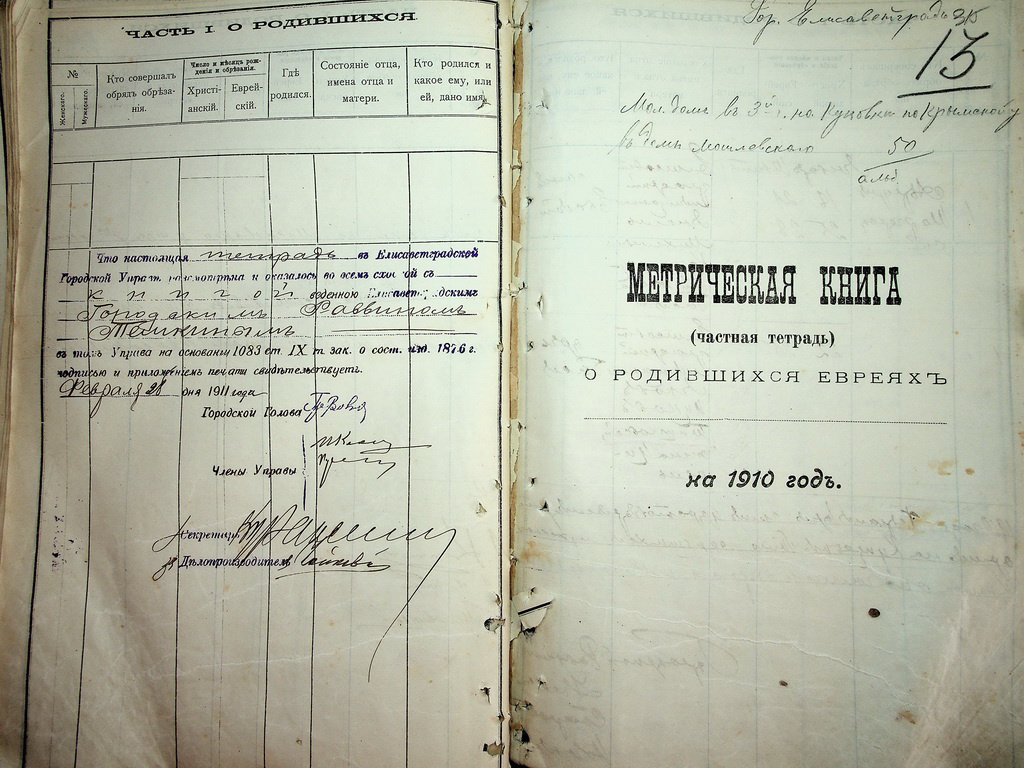 ЧАСТЬ I. О РОДИВШИХСЯ.
№
Женскаго.
Мужескаго.
Кто совершалъ
обрядъ обрѣза-
нія.
Число и мѣсяцъ рож-
денія и обрѣзанія.
Христі-
анскій.
Еврей-
скій.
Гдѣ
родился.
Состояніе отца,
имена отца и
матери.
Кто родился и
какое ему, или
ей, дано имя.
Что настоящая тетрадь въ Елисаветградской
Городской Управѣ разсмотрѣна и оказалось во всемъ сходной съ
книгой веденою Елисаветградскимъ
Городскимъ Раввиномъ
Темкинымъ
въ томъ Управа на основаніи 1083 ст. IX т. зак. о сост. изд. 1876 г.
подписью и приложеніемъ печати свидѣтельствуетъ.
Февраля 28 дня 1911 года
Городской Голова
Члены Управы
Секретарь
Дѣлопроизводитель
Гор. Елисаветградъ 315
13
Мол. домъ въ 3й на Куцовкѣ по Крымской у
въ домѣ 50
МЕТРИЧЕСКАЯ КНИГА
(частная тетрадь)
О РОДИВШИХСЯ ЕВРЕЯХЪ
на 1910 годъ.